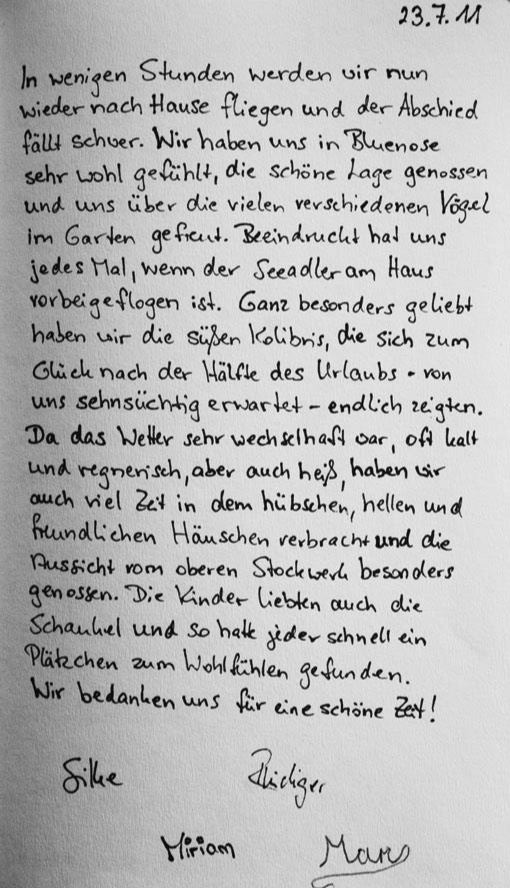 23.7.11
In wenigen Stunden werden wir nun
wieder nach Hause fliegen und der Abschied
fällt schwer. Wir haben uns in Bluenose
sehr wohl gefühlt, die schöne Lage genossen
und uns über die vielen verschiedenen Vögel
im Garten gefreut. Beeindruckt hat uns
jedes Mal, wenn der Seeadler am Haus
vorbeigeflogen ist. Ganz besonders geliebt
haben wir die süßen Kolibris, die sich zum
Glück nach der Hälfte des Urlaubs - von
uns sehnsüchtig erwartet - endlich zeigten.
Da das Wetter sehr wechselhaft war, oft kalt
und regnerisch, aber auch heiß, haben wir
auch viel Zeit in dem hübschen, hellen und
freundlichen Häuschen verbracht und die
Aussicht vom oberen Stockwerk besonders
genossen. Die Kinder liebten auch die
Schaukel und so hatte jeder schnell ein
Plätzchen zum Wohlfühlen gefunden.
Wir bedanken uns für eine schöne Zeit!
Silke Rüdiger
Miriam Marc